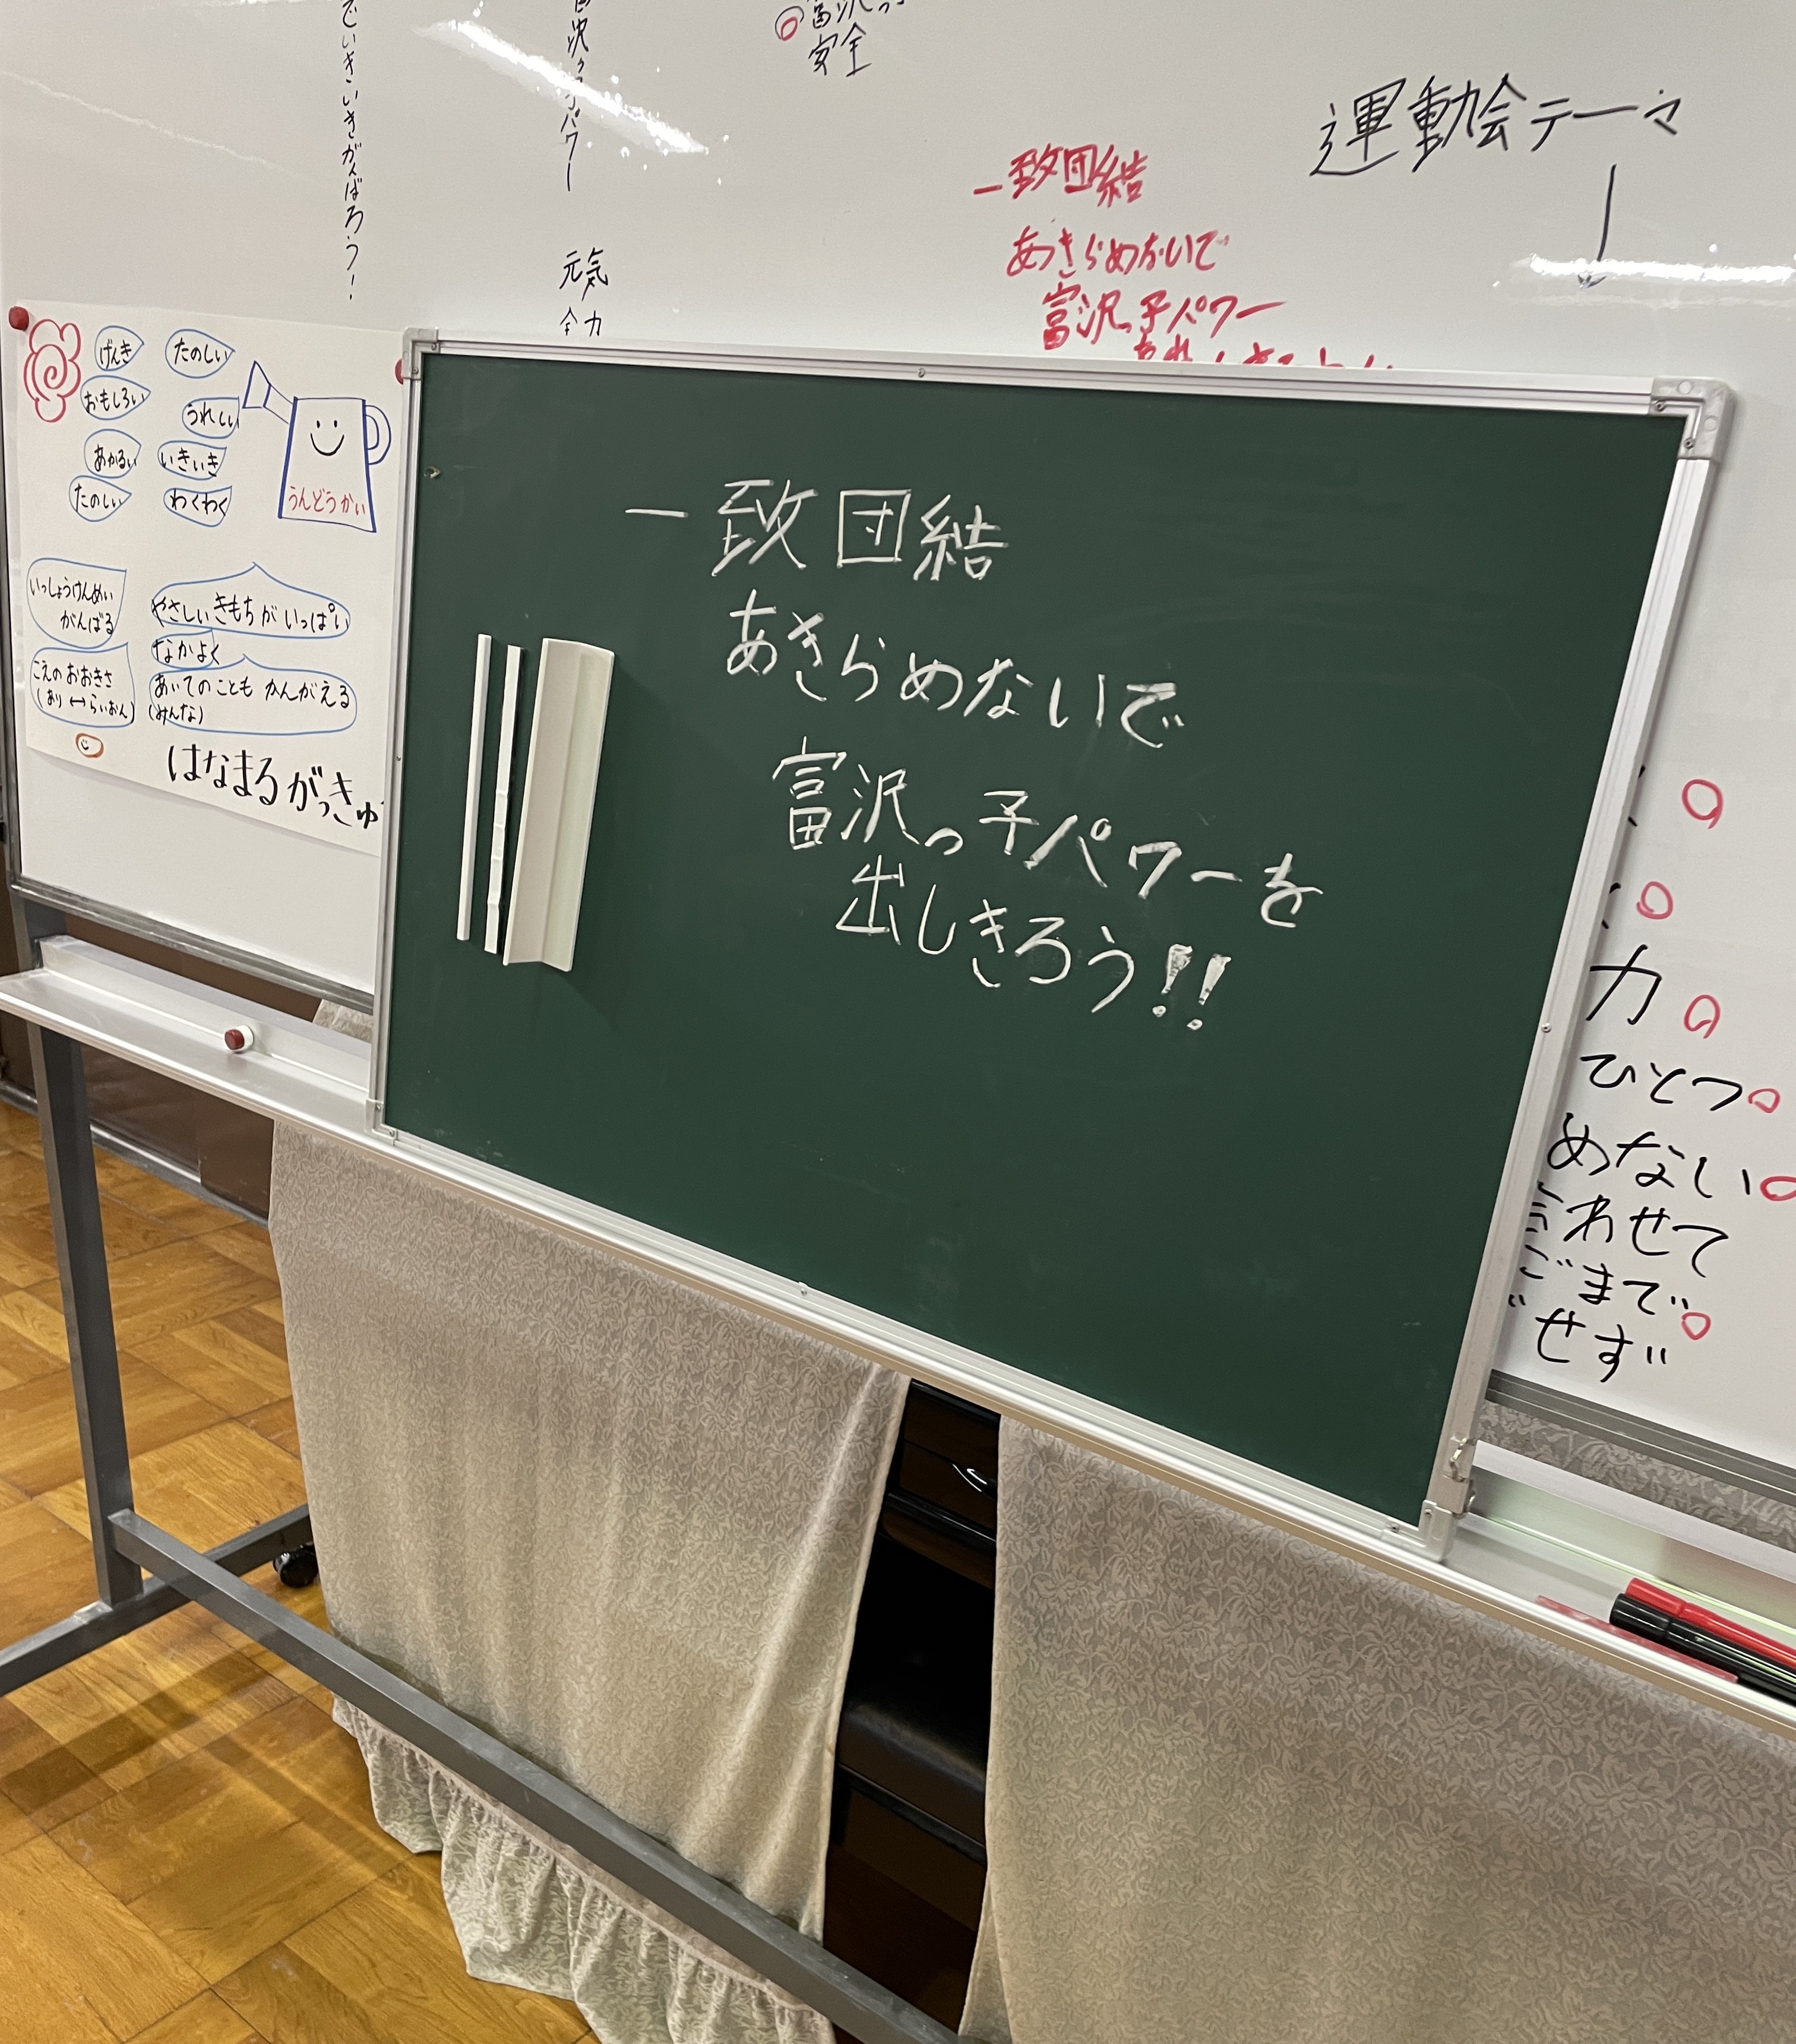 でいきいきがんばろう！
富沢っ子パワー
元気
全力
安全
運動会テーマ
一致団結
あきらめないで
富沢っ子パワー
げんき
たのしい
おもしろい
うれしい
あかるい
いきいき
たのしい
わくわく
うんどうかい
いっしょうけんめい
がんばる
やさしいきもちがいっぱい
なかよく
こえのおおきさ
(あり↔らいおん)
あいてのことも かんがえる
(みんな)
はなまるがっきゅ
一致団結
あきらめないで
富沢っ子パワーを
出しきろう!!
力
ひとつ
めない
合わせて
ごまで
せず